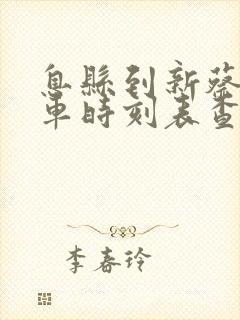 息縣到新蔡
車時刻表查
李春玲